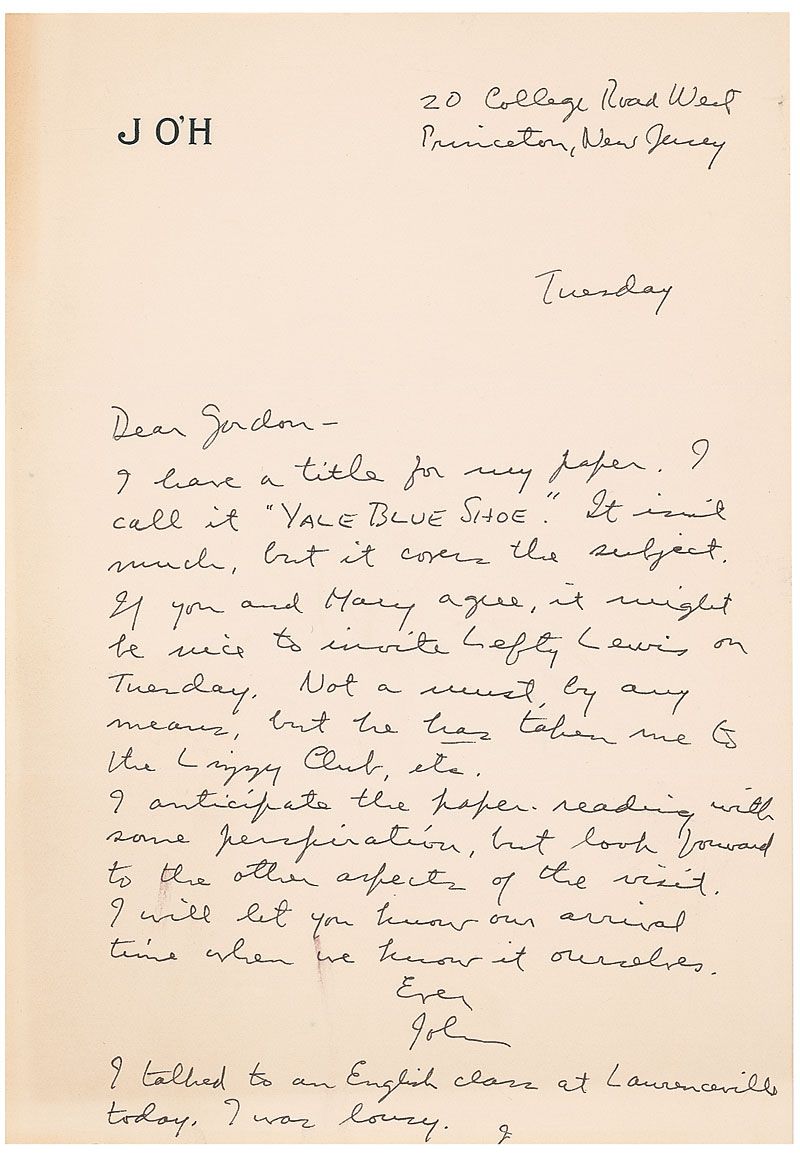 J O'H
20 College Road West
Princeton, New Jersey
Tuesday
Dear Gordon—
I have a title for my paper. I
call it "YALE BLUE SHOE." It isn't
much, but it covers the subject.
If you and Mary agree, it might
be nice to invite Lefty Lewis on
Tuesday. Not a must, by any
means, but he has taken me to
the Lizzy Club, etc.
I anticipate the paper-reading with
some perspiration, but look forward
to the other aspects of the visit.
I will let you know our arrival
time when we know it ourselves.
Ever
John
I talked to an English class at Lawrenceville
today. I was lousy.